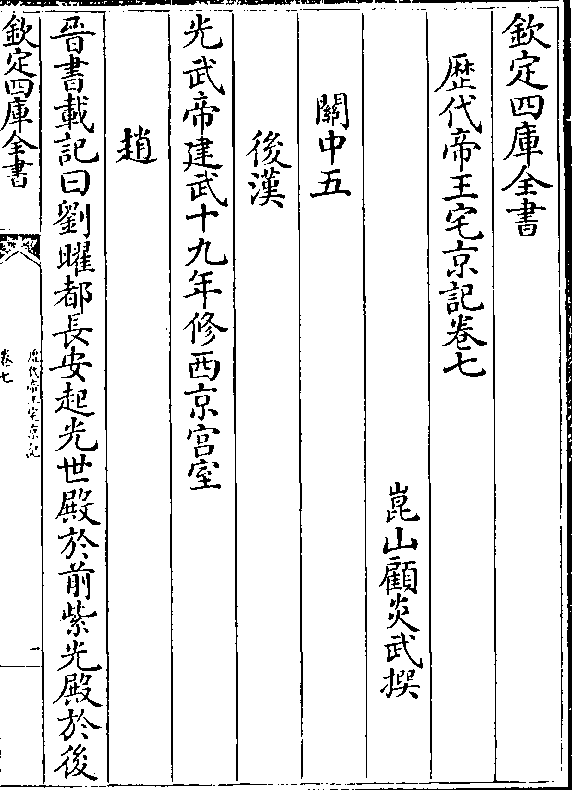 欽定四庫全書
歷代帝王宅京記卷七
崑山顧炎武撰
關中五
後漢
光武帝建武十九年修西京宫室
趙
晉書載記曰劉曜都長安起光世殿於前紫光殿於後
欽定四庫全書
歷代帝王宅京記
卷七
一